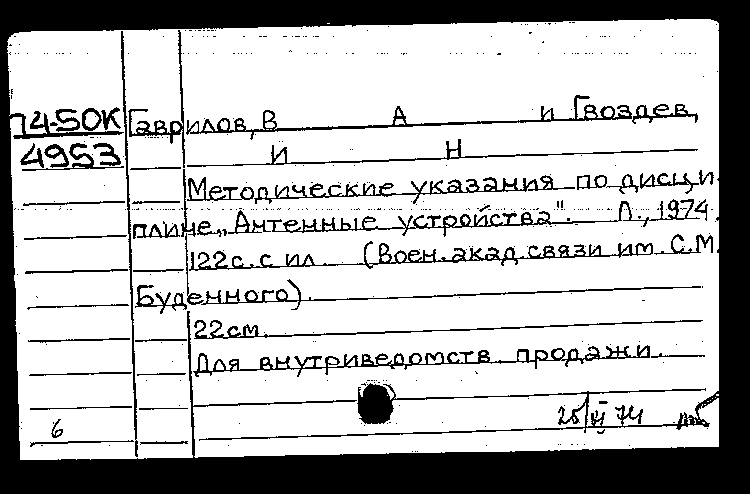 74-50К Гаврилов, В А и Гвоздев,
4953 И Н
Методические указания по дисци-
плине „Антенные устройства". Л., 1974.
122с. с ил. (Воен. акад. связи им. С.М.
Буденного).
22см.
Для внутриведомств. продажи.
6 25/VI 74